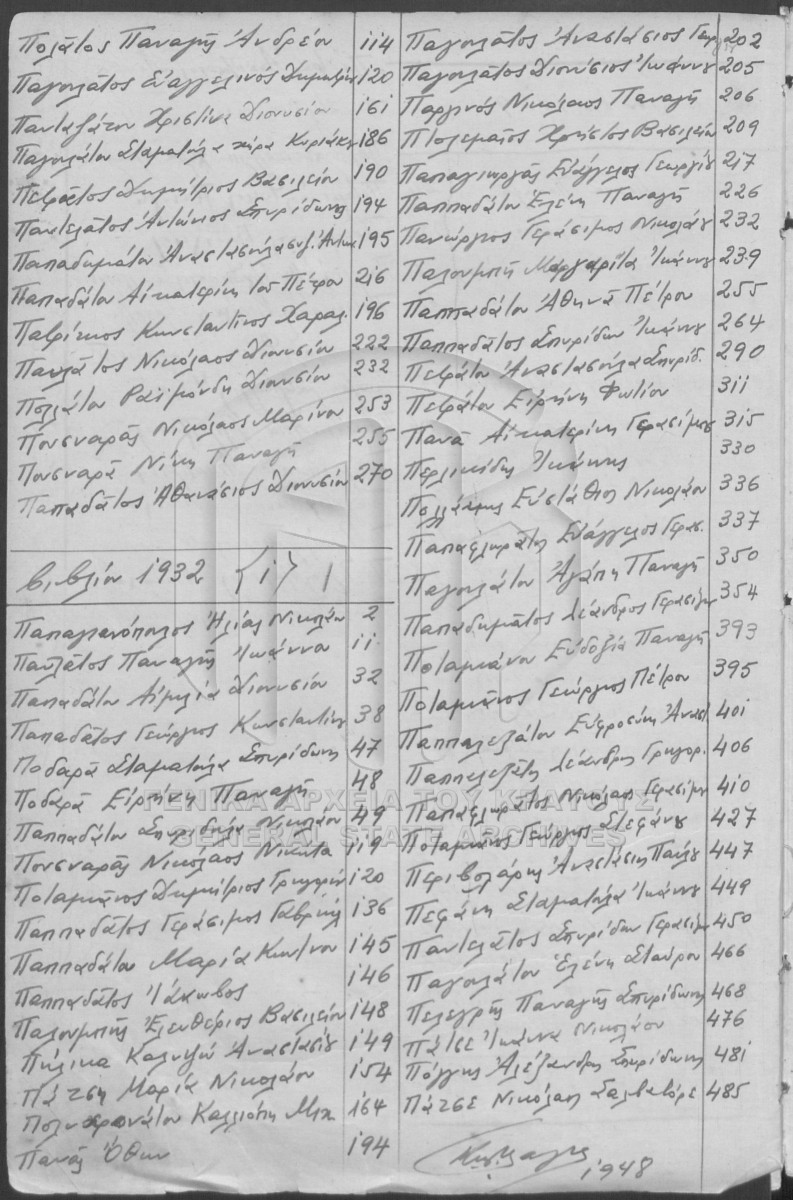 Πολᾶτος Παναγῆς Ἀνδρέου 114
Παγουλᾶτος Εὐαγγελινός Δημητρίου 120
Πανταζάτου Χριστίνα Διονυσίου 161
Παγουλάτου Σταματούλα χήρα Κυριάκου 186
Πεφᾶτος Δημήτριος Βασιλείου 190
Παντελᾶτος Ἀντώνιος Σπυρίδωνος 194
Παπαδημάτου Ἀναστασούλα συζ. Ἀντων 195
Παπαδάτου Αἰκατερίνη τοῦ Πέτρου 216
Πατρίκιος Κωνσταντῖνος Χαραλ. 196
Παυλᾶτος Νικόλαος Διονυσίου 222
Πολλάτου Ραϊμόνδη Διονυσίου 232
Πουσναρᾶς Νικόλαος Μαρίνου 253
Πουσναρᾶ Νίκη Παναγῆ 255
Παπαδᾶτος Ἀθανάσιος Διονυσίου 270
Βιβλίον 1932 <1> 1
Παπαγιανόπουλος Ἠλίας Νικολάου 2
Παυλᾶτος Παναγῆς Ἰωάννου 11
Παπαδάτου Αἰμιλία Διονυσίου 32
Παπαδᾶτος Γεώργιος Κωνσταντίνου 38
Ποδαρᾶ Σταματούλα Σπυρίδωνος 47
Ποδαρᾶ Εἰρήνη Παναγῆ 48
Παππαδάτου Σπυριδούλα Νικολάου 49
Πουσναρᾶς Νικόλαος Νικήτα 119
Ποταμιᾶνος Δημήτριος Γρηγορίου 120
Παππαδᾶτος Γεράσιμος Γαβριήλ 136
Παππαδάτου Μαρία Κων/νου 145
Παππαδᾶτος Ἰάκωβος 146
Παλουμπῆς Ἐλευθέριος Βασιλείου 148
Πήλικα Καλυψώ Ἀναστασίου 149
Πάτση Μαρία Νικολάου 154
Πολυχρονάτου Καλλιόπη Μιχ. 164
Πανᾶς Ὄθων 194
Παγουλᾶτος Ἀναστάσιος Γεωρ 202
Παγουλᾶτος Διονύσιος Ἰωάννου 205
Παργινός Νικόλαος Παναγῆ 206
Πτολεμαῖος Χρῆστος Βασιλείου 209
Παπαγιωργᾶς Εὐάγγελος Γεωργίου 217
Παππαδάτου Ἑλένη Παναγῆ 226
Πανώργιος Γεράσιμος Νικολάου 232
Παλουμπῆ Μαργαρίτα Ἰωάννου 239
Παππαδάτου Ἀθηνᾶ Πέτρου 255
Παππαδᾶτος Σπυρίδων Ἰωάννου 264
Πεφάτου Ἀναστασούλα Σπυρίδ. 290
Πεφάτου Εἰρήνη Φωτίου 311
Πανᾶ Αἰκατερίνη Γερασίμου 315
Περλικίδης Ἰωάννης 330
Εὐστάθιος Νικολάου 336
Παπαφλωράτος Εὐάγγελος Γερασ. 337
Παγουλάτου Ἀγάπη Παναγῆ 350
Παπαδημᾶτος Λέανδρος Γερασίμου 354
Ποταμιάνου Εὐδοξία Παναγῆ 393
Ποταμιᾶνος Γεώργιος Πέτρου 395
Παππαλεξάτου Εὐφροσύνη Ἀναστ. 401
Παππαλεξάτος Λέανδρος Γρηγορ. 406
Παπαφλωρᾶτος Νικόλαος Γερασίμου 410
Ποταμιᾶνος Γεώργιος Στεφάνου 427
Περιβολάρης Ἀναστάσιος Παύλου 447
Πεφάνη Σταματούλα Ἰωάννου 449
Παντελᾶτος Σπυρίδων Γερασίμου 450
Παγουλάτου Ἑλένη Σταύρου 466
Πελεγρῆς Παναγῆς Σπυρίδωνος 468
Πάτσε Ἰωάννα Νικολάου 476
Πόγγης Ἀλέξανδρος Σπυρίδωνος 481
Πάτσε Νικόλαος Σαλβατόρε 485
1948
ΓΕΝΙΚΑ ΑΡΧΕΙΑ ΤΟΥ ΚΡΑΤΟΥΣ
GENERAL STATE ARCHIVES